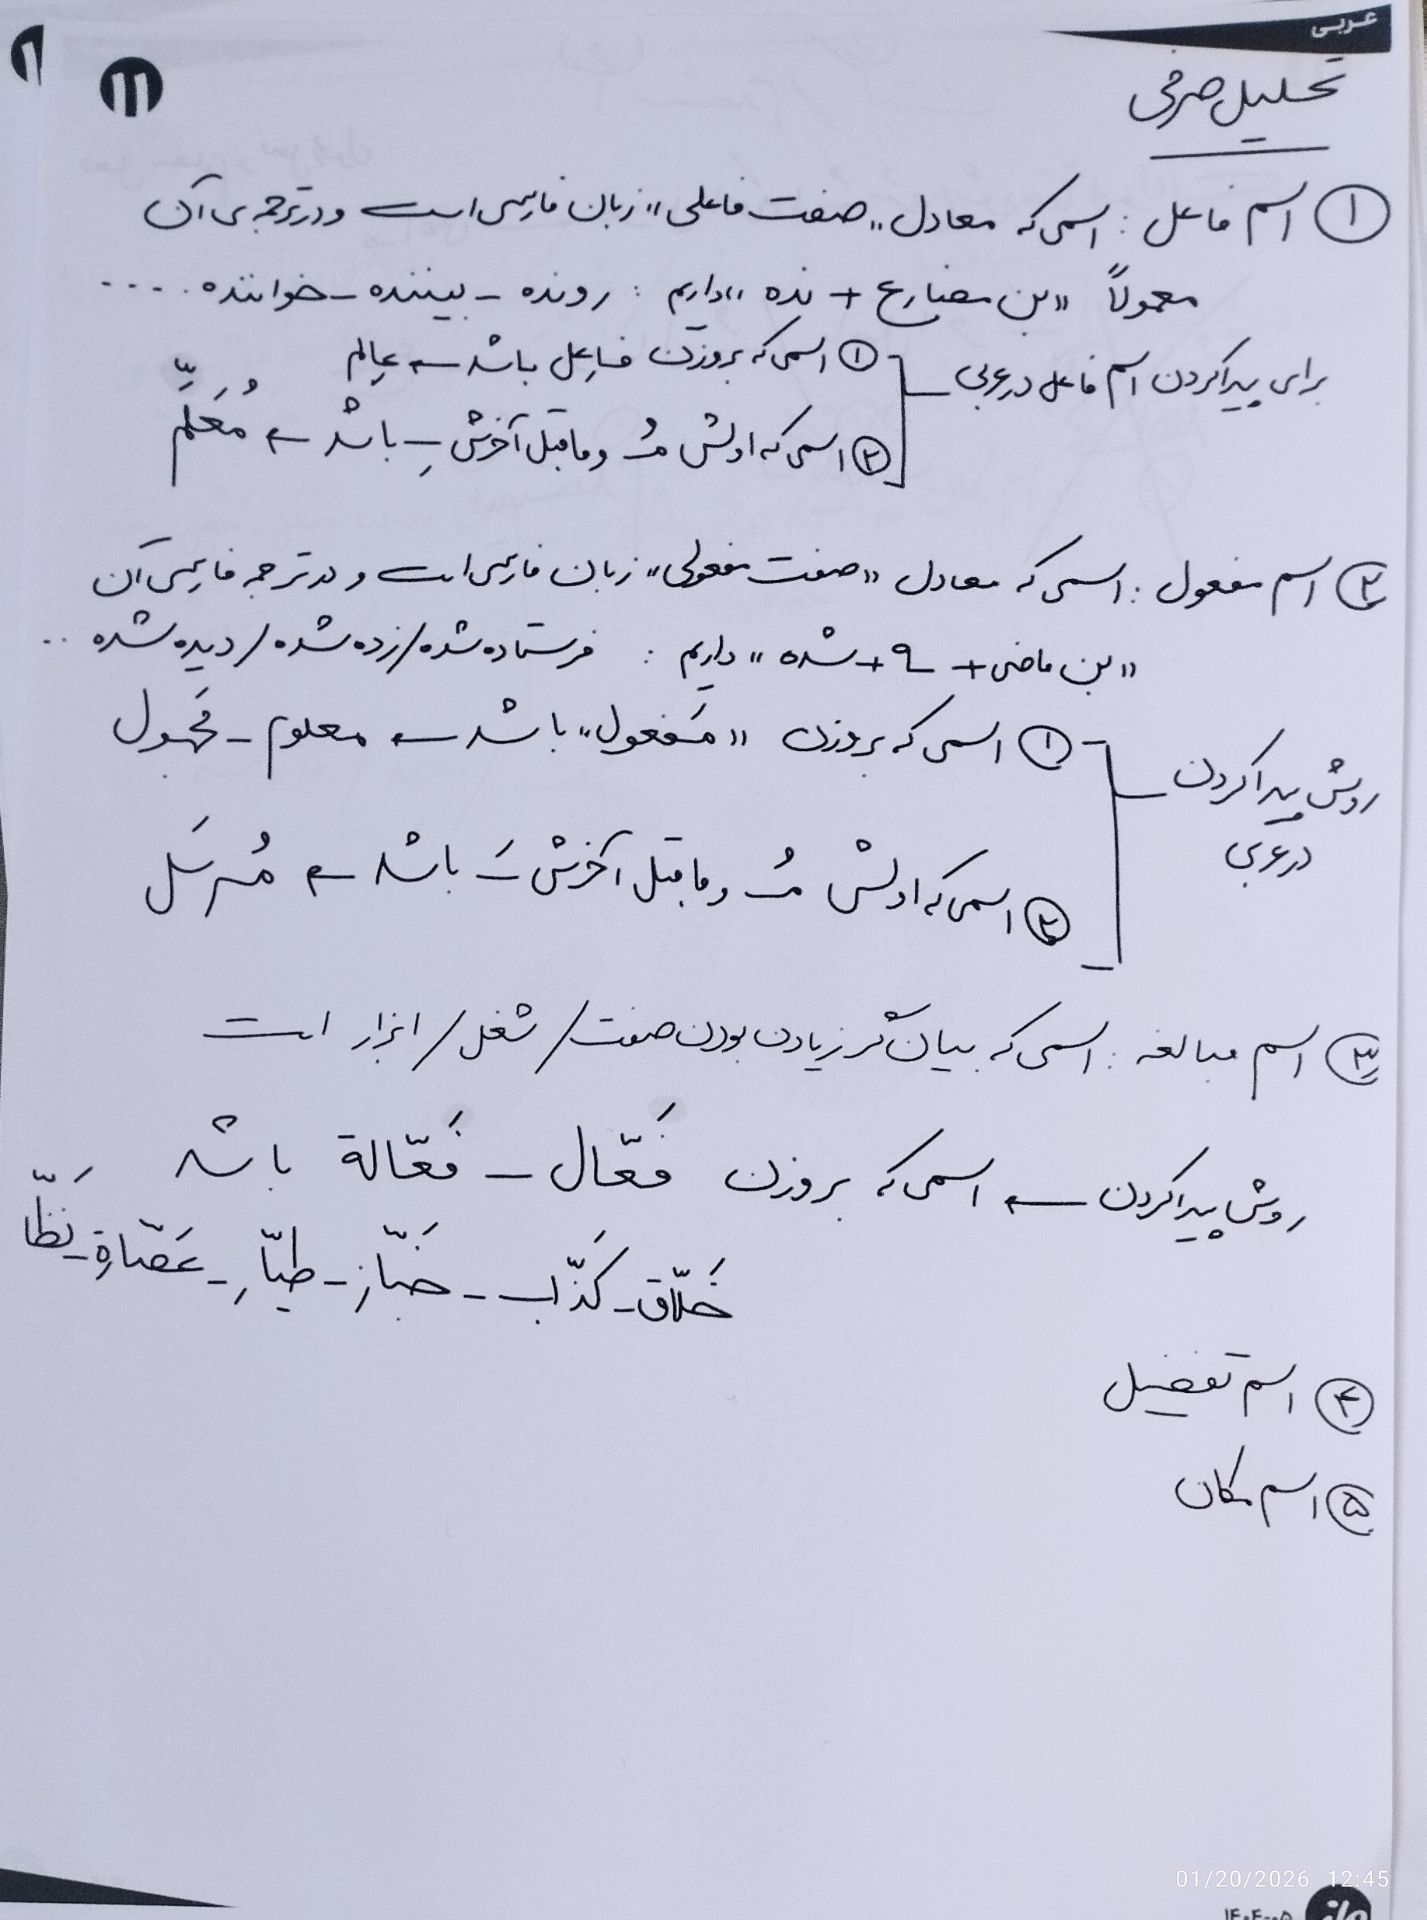 عربی
تحلیل صرفی
① اسم فاعل : اسمی که معادل «صفت فاعلی» زبان فارسی است و در ترجمه‌ی آن
معمولاً «بن مضارع + نده» داریم : رونده - بیننده - خواننده ....
برای پیدا کردن اسم فاعل در عربی
① اسمی که بر وزن فاعِل باشد ← عالِم
② اسمی که اولش مُـ و ماقبل آخرش ـِ باشد ← مُعَلِّم
② اسم مفعول : اسمی که معادل «صفت مفعولی» زبان فارسی است و در ترجمه فارسی آن
«بن ماضی + ـه + شده» داریم : فرستاده شده / زده شده / دیده شده ..
روش پیدا کردن
در عربی
① اسمی که بر وزن «مَفعول» باشد ← معلوم - مَجهول
② اسمی که اولش مُـ و ماقبل آخرش ـَ باشد ← مُرسَل
③ اسم مبالغه : اسمی که بیان‌گر زیادن بودن صفت / شغل / ابزار است
روش پیدا کردن ← اسمی که بر وزن فَعّال - فَعّالة باشد
خَلّاق - کَذّاب - خَبّاز - طیّار - عَصّارة - نَظّا
④ اسم تفضیل
⑤ اسم مکان
01/20/2026 12:45